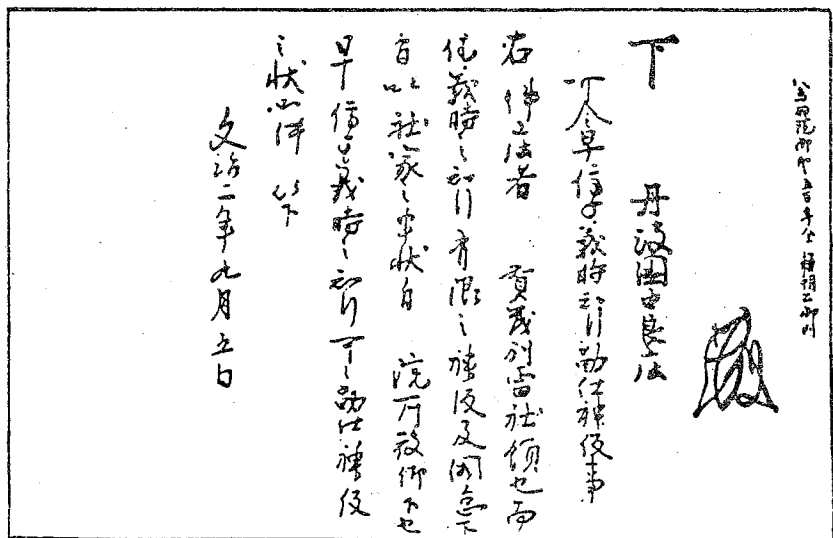 下 丹波国由良庄
可令早停止義時知行勤仕神役事
右件庄者 賀茂別雷社領也而
依義時之知行有限之神役及闕怠之
旨以社家之申状自 院所被仰下也
早停止義時之知行可令勤仕神役
之状如件以下
文治二年九月五日